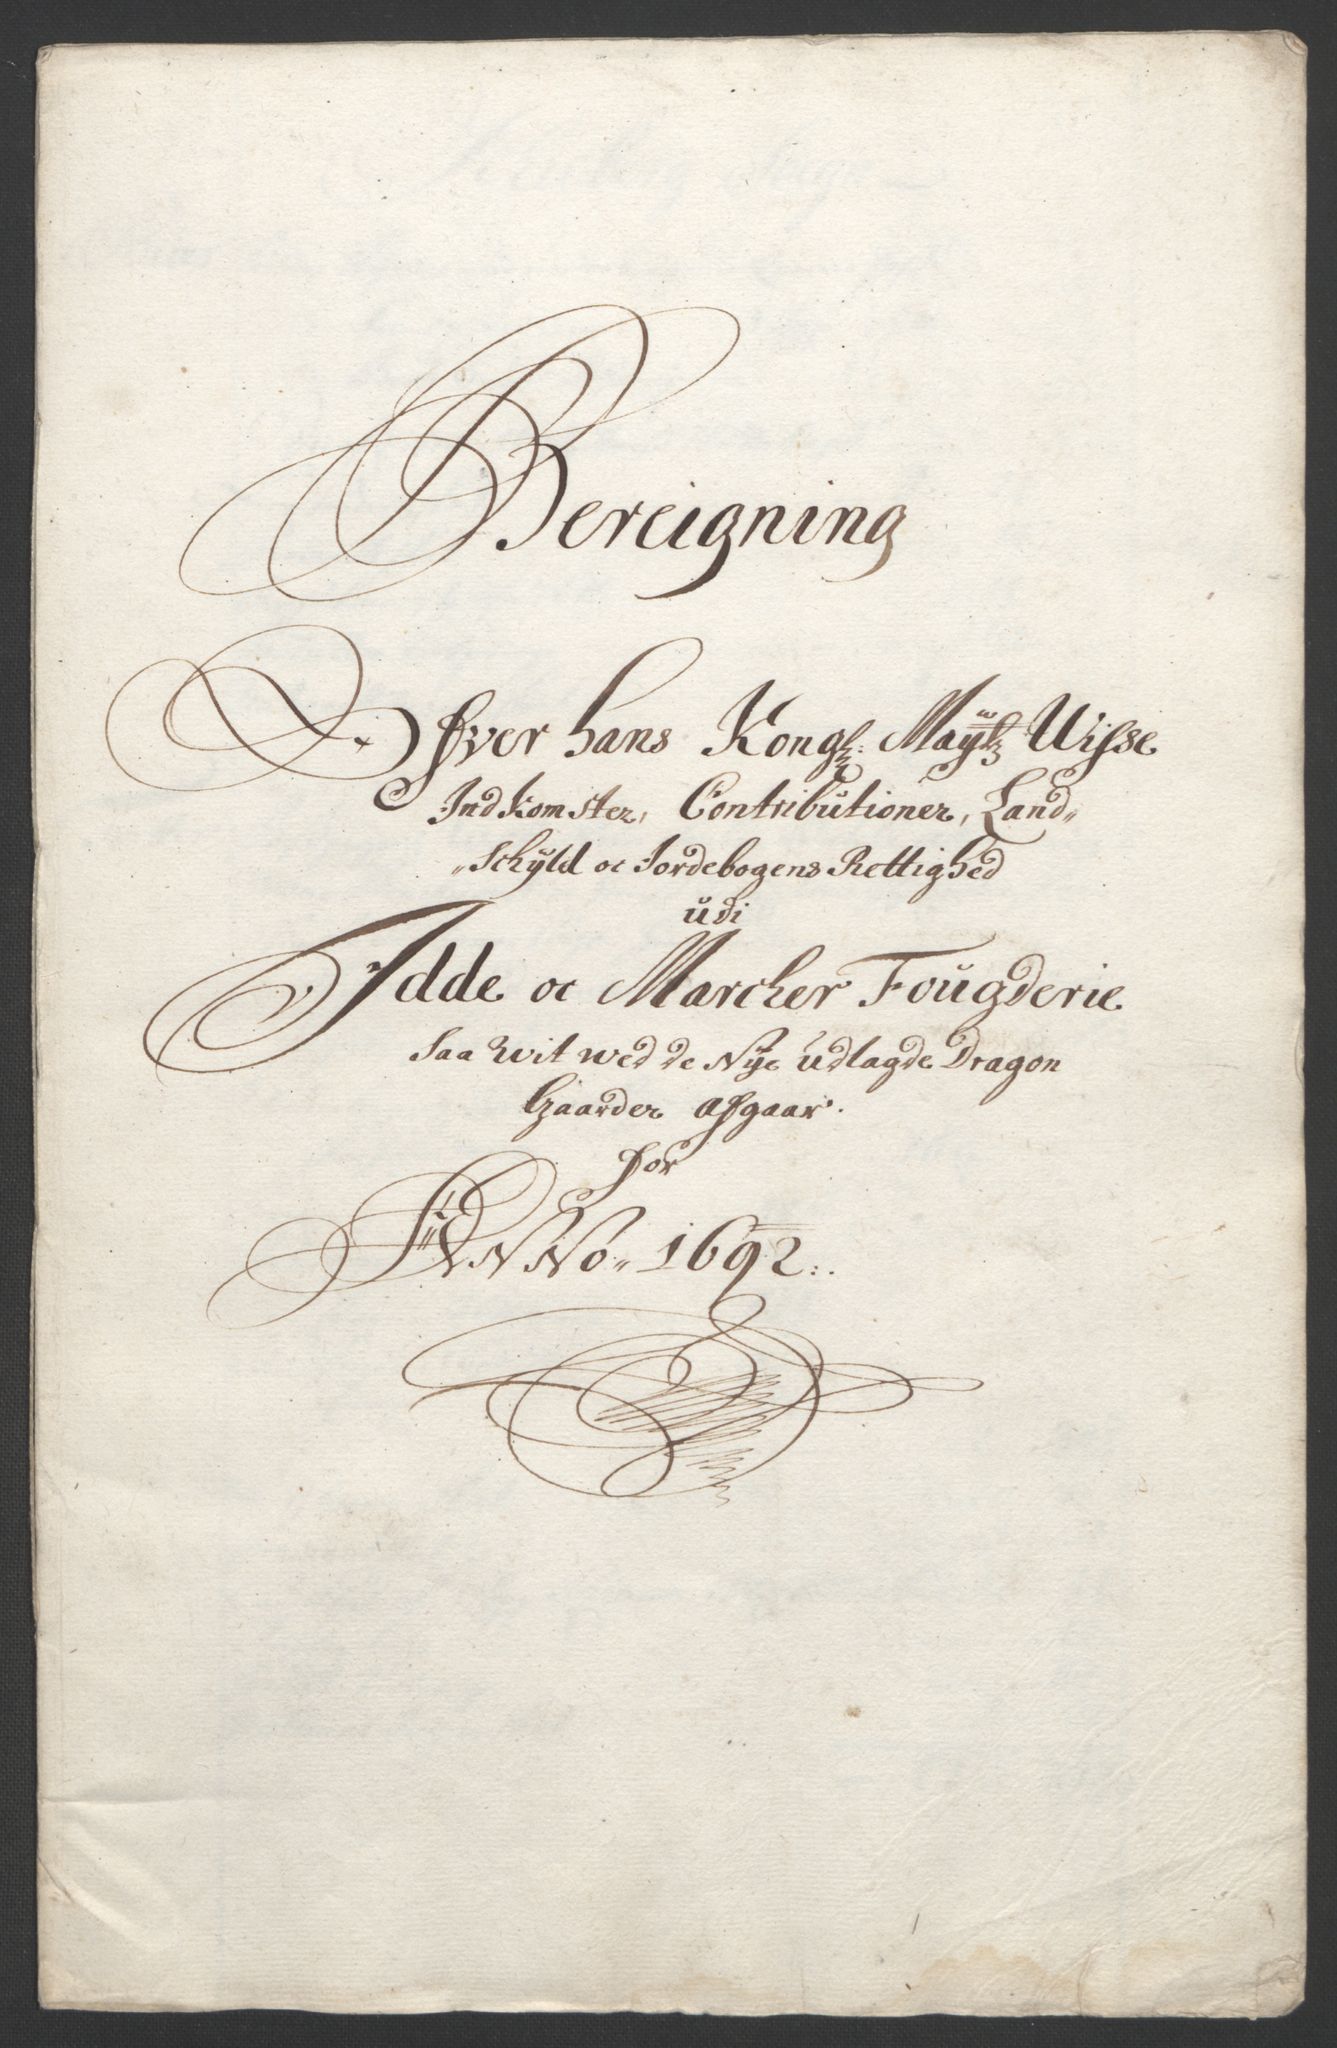 Bereigning
Øfver hans Kongl: Maÿtz Wisse
Indkomster, Contributioner, Land„
„Schÿld oc Jordebogens Rettighed
udi
Idde oc Marcher Fougderie
saa wit wed de Nÿe udlagde Dragon
Gaarder afgaar.
for
ANNo„ 1692.